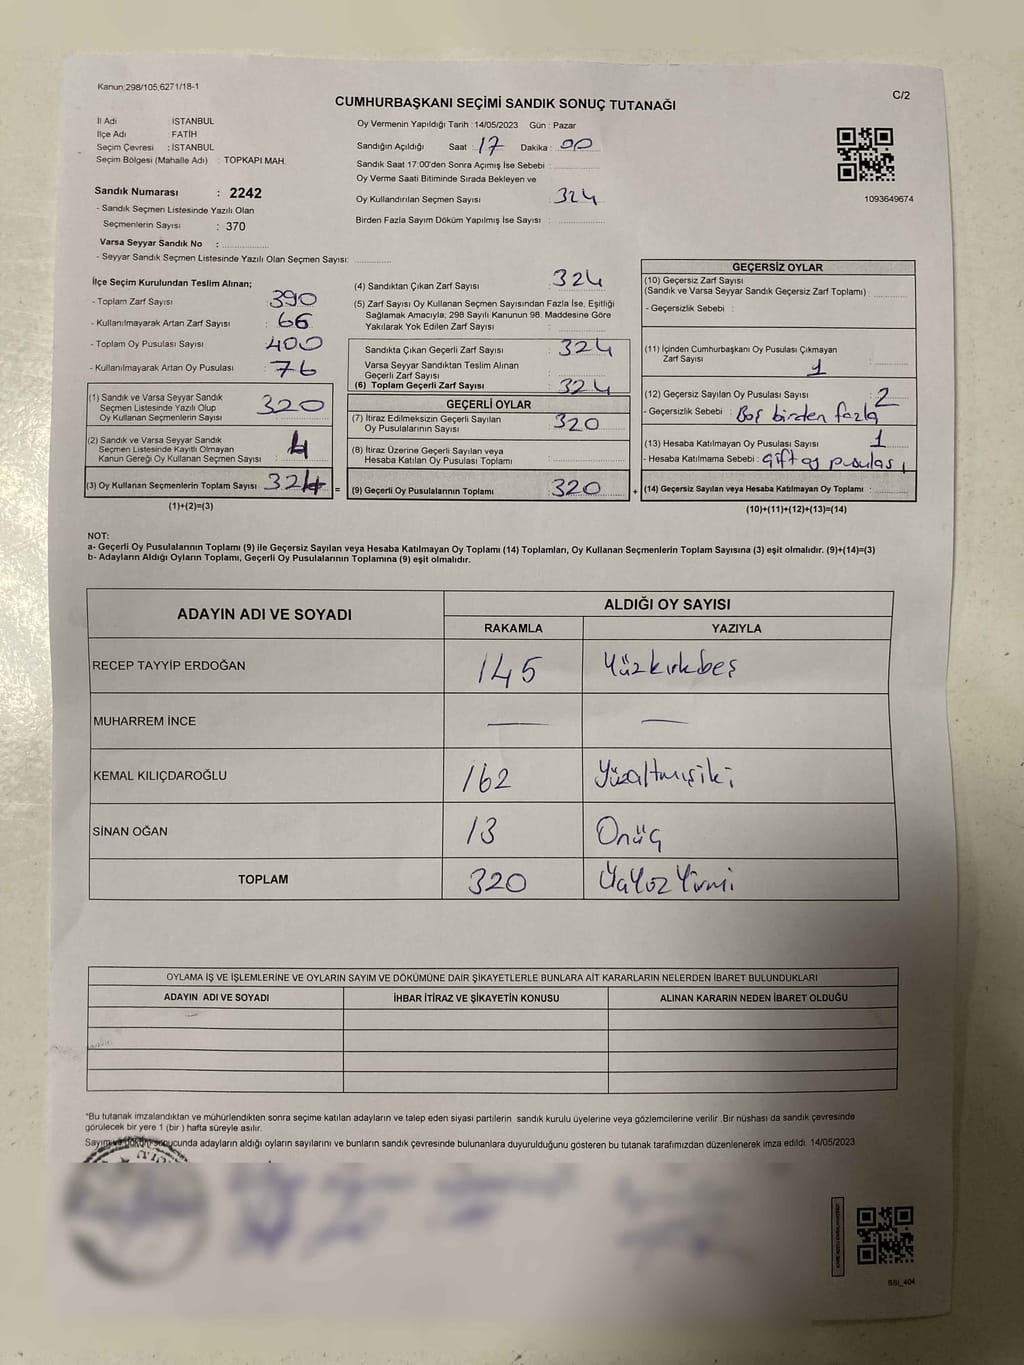 Kanun:298/105;6271/18-1
C/2
CUMHURBAŞKANI SEÇİMİ SANDIK SONUÇ TUTANAĞI
İl Adı : İSTANBUL
İlçe Adı : FATİH
Seçim Çevresi : İSTANBUL
Seçim Bölgesi (Mahalle Adı) : TOPKAPI MAH.
Sandık Numarası : 2242
- Sandık Seçmen Listesinde Yazılı Olan
Seçmenlerin Sayısı : 370
Varsa Seyyar Sandık No :
- Seyyar Sandık Seçmen Listesinde Yazılı Olan Seçmen Sayısı:
Oy Vermenin Yapıldığı Tarih : 14/05/2023 Gün : Pazar
Sandığın Açıldığı Saat : 17 Dakika : 00
Sandık Saat 17:00'den Sonra Açımış İse Sebebi :
Oy Verme Saati Bitiminde Sırada Bekleyen ve
Oy Kullandırılan Seçmen Sayısı : 324
Birden Fazla Sayım Döküm Yapılmış İse Sayısı :
1093649674
İlçe Seçim Kurulundan Teslim Alınan;
- Toplam Zarf Sayısı : 390
- Kullanılmayarak Artan Zarf Sayısı : 66
- Toplam Oy Pusulası Sayısı : 400
- Kullanılmayarak Artan Oy Pusulası : 76
(1) Sandık ve Varsa Seyyar Sandık
Seçmen Listesinde Yazılı Olup
Oy Kullanan Seçmenlerin Sayısı : 320
(2) Sandık ve Varsa Seyyar Sandık
Seçmen Listesinde Kayıtlı Olmayan
Kanun Gereği Oy Kullanan Seçmen Sayısı : 4
(3) Oy Kullanan Seçmenlerin Toplam Sayısı : 324 =
(1)+(2)=(3)
(4) Sandıktan Çıkan Zarf Sayısı : 324
(5) Zarf Sayısı Oy Kullanan Seçmen Sayısından Fazla İse, Eşitliği
Sağlamak Amacıyla; 298 Sayılı Kanunun 98. Maddesine Göre
Yakılarak Yok Edilen Zarf Sayısı :
Sandıkta Çıkan Geçerli Zarf Sayısı : 324
Varsa Seyyar Sandıktan Teslim Alınan
Geçerli Zarf Sayısı :
(6) Toplam Geçerli Zarf Sayısı : 324
GEÇERLİ OYLAR
(7) İtiraz Edilmeksizin Geçerli Sayılan
Oy Pusulalarının Sayısı : 320
(8) İtiraz Üzerine Geçerli Sayılan veya
Hesaba Katılan Oy Pusulası Toplamı :
(9) Geçerli Oy Pusulalarının Toplamı : 320 +
GEÇERSİZ OYLAR
(10) Geçersiz Zarf Sayısı
(Sandık ve Varsa Seyyar Sandık Geçersiz Zarf Toplamı) :
- Geçersizlik Sebebi :
(11) İçinden Cumhurbaşkanı Oy Pusulası Çıkmayan
Zarf Sayısı : 1
(12) Geçersiz Sayılan Oy Pusulası Sayısı : 2
- Geçersizlik Sebebi : Boş birden fazla
(13) Hesaba Katılmayan Oy Pusulası Sayısı : 1
- Hesaba Katılmama Sebebi : Çift oy pusulası
(14) Geçersiz Sayılan veya Hesaba Katılmayan Oy Toplamı :
(10)+(11)+(12)+(13)=(14)
NOT:
a- Geçerli Oy Pusulalarının Toplamı (9) ile Geçersiz Sayılan veya Hesaba Katılmayan Oy Toplamı (14) Toplamları, Oy Kullanan Seçmenlerin Toplam Sayısına (3) eşit olmalıdır. (9)+(14)=(3)
b- Adayların Aldığı Oyların Toplamı, Geçerli Oy Pusulalarının Toplamına (9) eşit olmalıdır.
ADAYIN ADI VE SOYADI
ALDIĞI OY SAYISI
RAKAMLA YAZIYLA
RECEP TAYYİP ERDOĞAN 145 Yüzkırkbeş
MUHARREM İNCE — —
KEMAL KILIÇDAROĞLU 162 Yüzaltmışiki
SİNAN OĞAN 13 Onüç
TOPLAM 320
OYLAMA İŞ VE İŞLEMLERİNE VE OYLARIN SAYIM VE DÖKÜMÜNE DAİR ŞİKAYETLERLE BUNLARA AİT KARARLARIN NELERDEN İBARET BULUNDUKLARI
ADAYIN ADI VE SOYADI İHBAR İTİRAZ VE ŞİKAYETİN KONUSU ALINAN KARARIN NEDEN İBARET OLDUĞU
*Bu tutanak imzalandıktan ve mühürlendikten sonra seçime katılan adayların ve talep eden siyasi partilerin sandık kurulu üyelerine veya gözlemcilerine verilir .Bir nüshası da sandık çevresinde
görülecek bir yere 1 (bir ) hafta süreyle asılır.
Sayım ve döküm sonucunda adayların aldığı oyların sayılarını ve bunların sandık çevresinde bulunanlara duyurulduğunu gösteren bu tutanak tarafımızdan düzenlenerek imza edildi. 14/05/2023
SSI_404